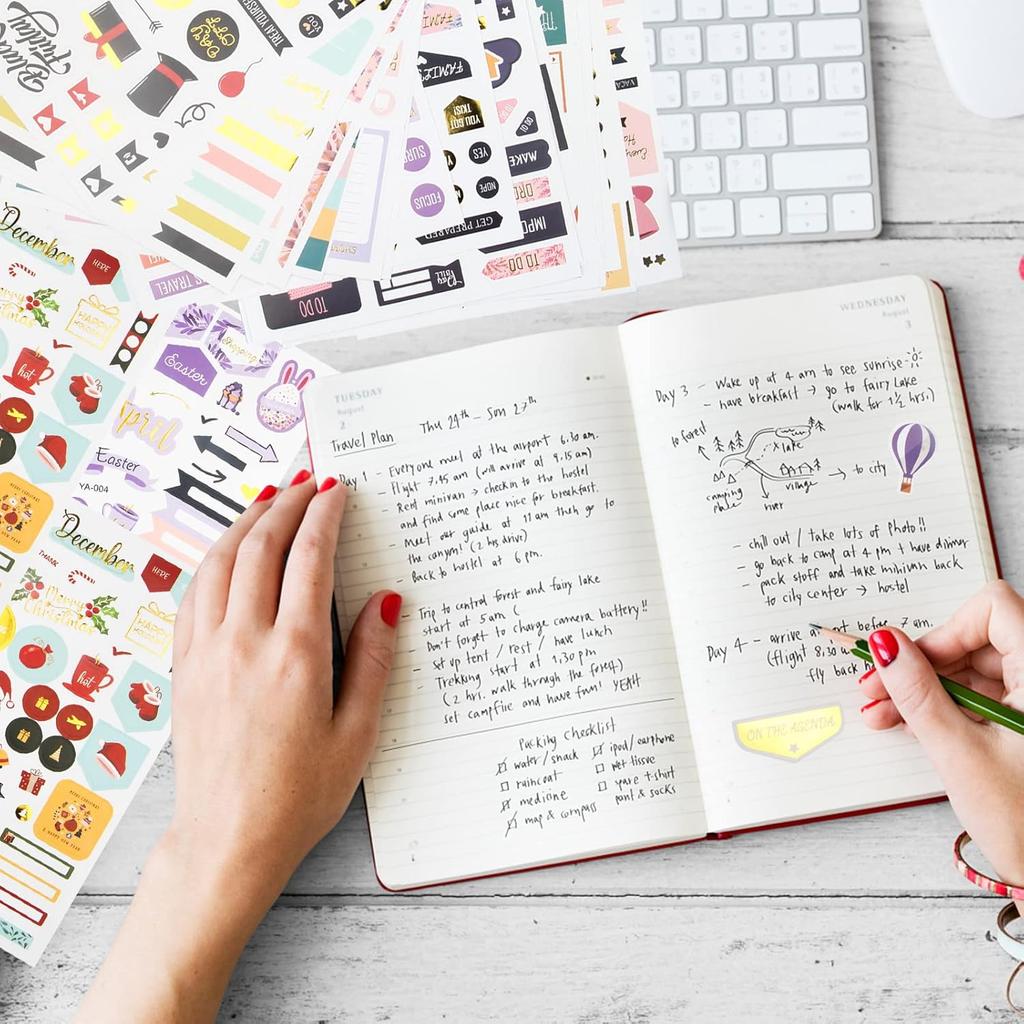 Black
Friday
TREAT YOURSELF
YOU
FAMILY
YOU GOT
THIS!
YES
NOPE
FOCUS
GET PREPARED
MAKE
TO DO
TO DO
TO DO
TRAVEL
December
HERE
Merry
Christmas
HAPPY
HOLIDAYS
hot
Easter
Shopping
April
Easter
YA-004
MERRY CHRISTMAS
December
HERE
Merry
Christmas
HAPPY
hot
MERRY CHRISTMAS
TUESDAY
August
2
Travel Plan Thu 24th - Sun 27th
Day 1 - Everyone meet at the airport 6.30 am.
- Flight 7.45 am (will arrive at 9.15 am)
- Rent minivan → check in to the hostel
and find some place nice for breakfast.
- Meet our guide at 11 am then go to
the canyon! (2 hrs drive)
- Back to hostel at 6 pm.
- Trip to central forest and fairy lake
start at 5 am (
- Don't forget to charge camera battery!!
- set up tent / rest / have lunch
- Trekking start at 1.30 pm
(2 hrs. walk through the forest)
set campfire and have fun! YEAH
Packing Checklist
water/snack ipod/earphone
raincoat wet tissue
medicine t-shirt
map & compass pant & socks
WEDNESDAY
August
3
Day 3 - Wake up at 4 am to see sunrise
- have breakfast → go to fairy Lake
(walk for 1 1/2 hrs.)
to forest
lake
camping
village → to city
river
- chill out / take lots of photo!!
- go back to camp at 4 pm + have dinner
- pack stuff and take minivan back
to city center → hostel
Day 4 - arrive before 7 am.
(flight 8.30
fly back
ON THE AGENDA